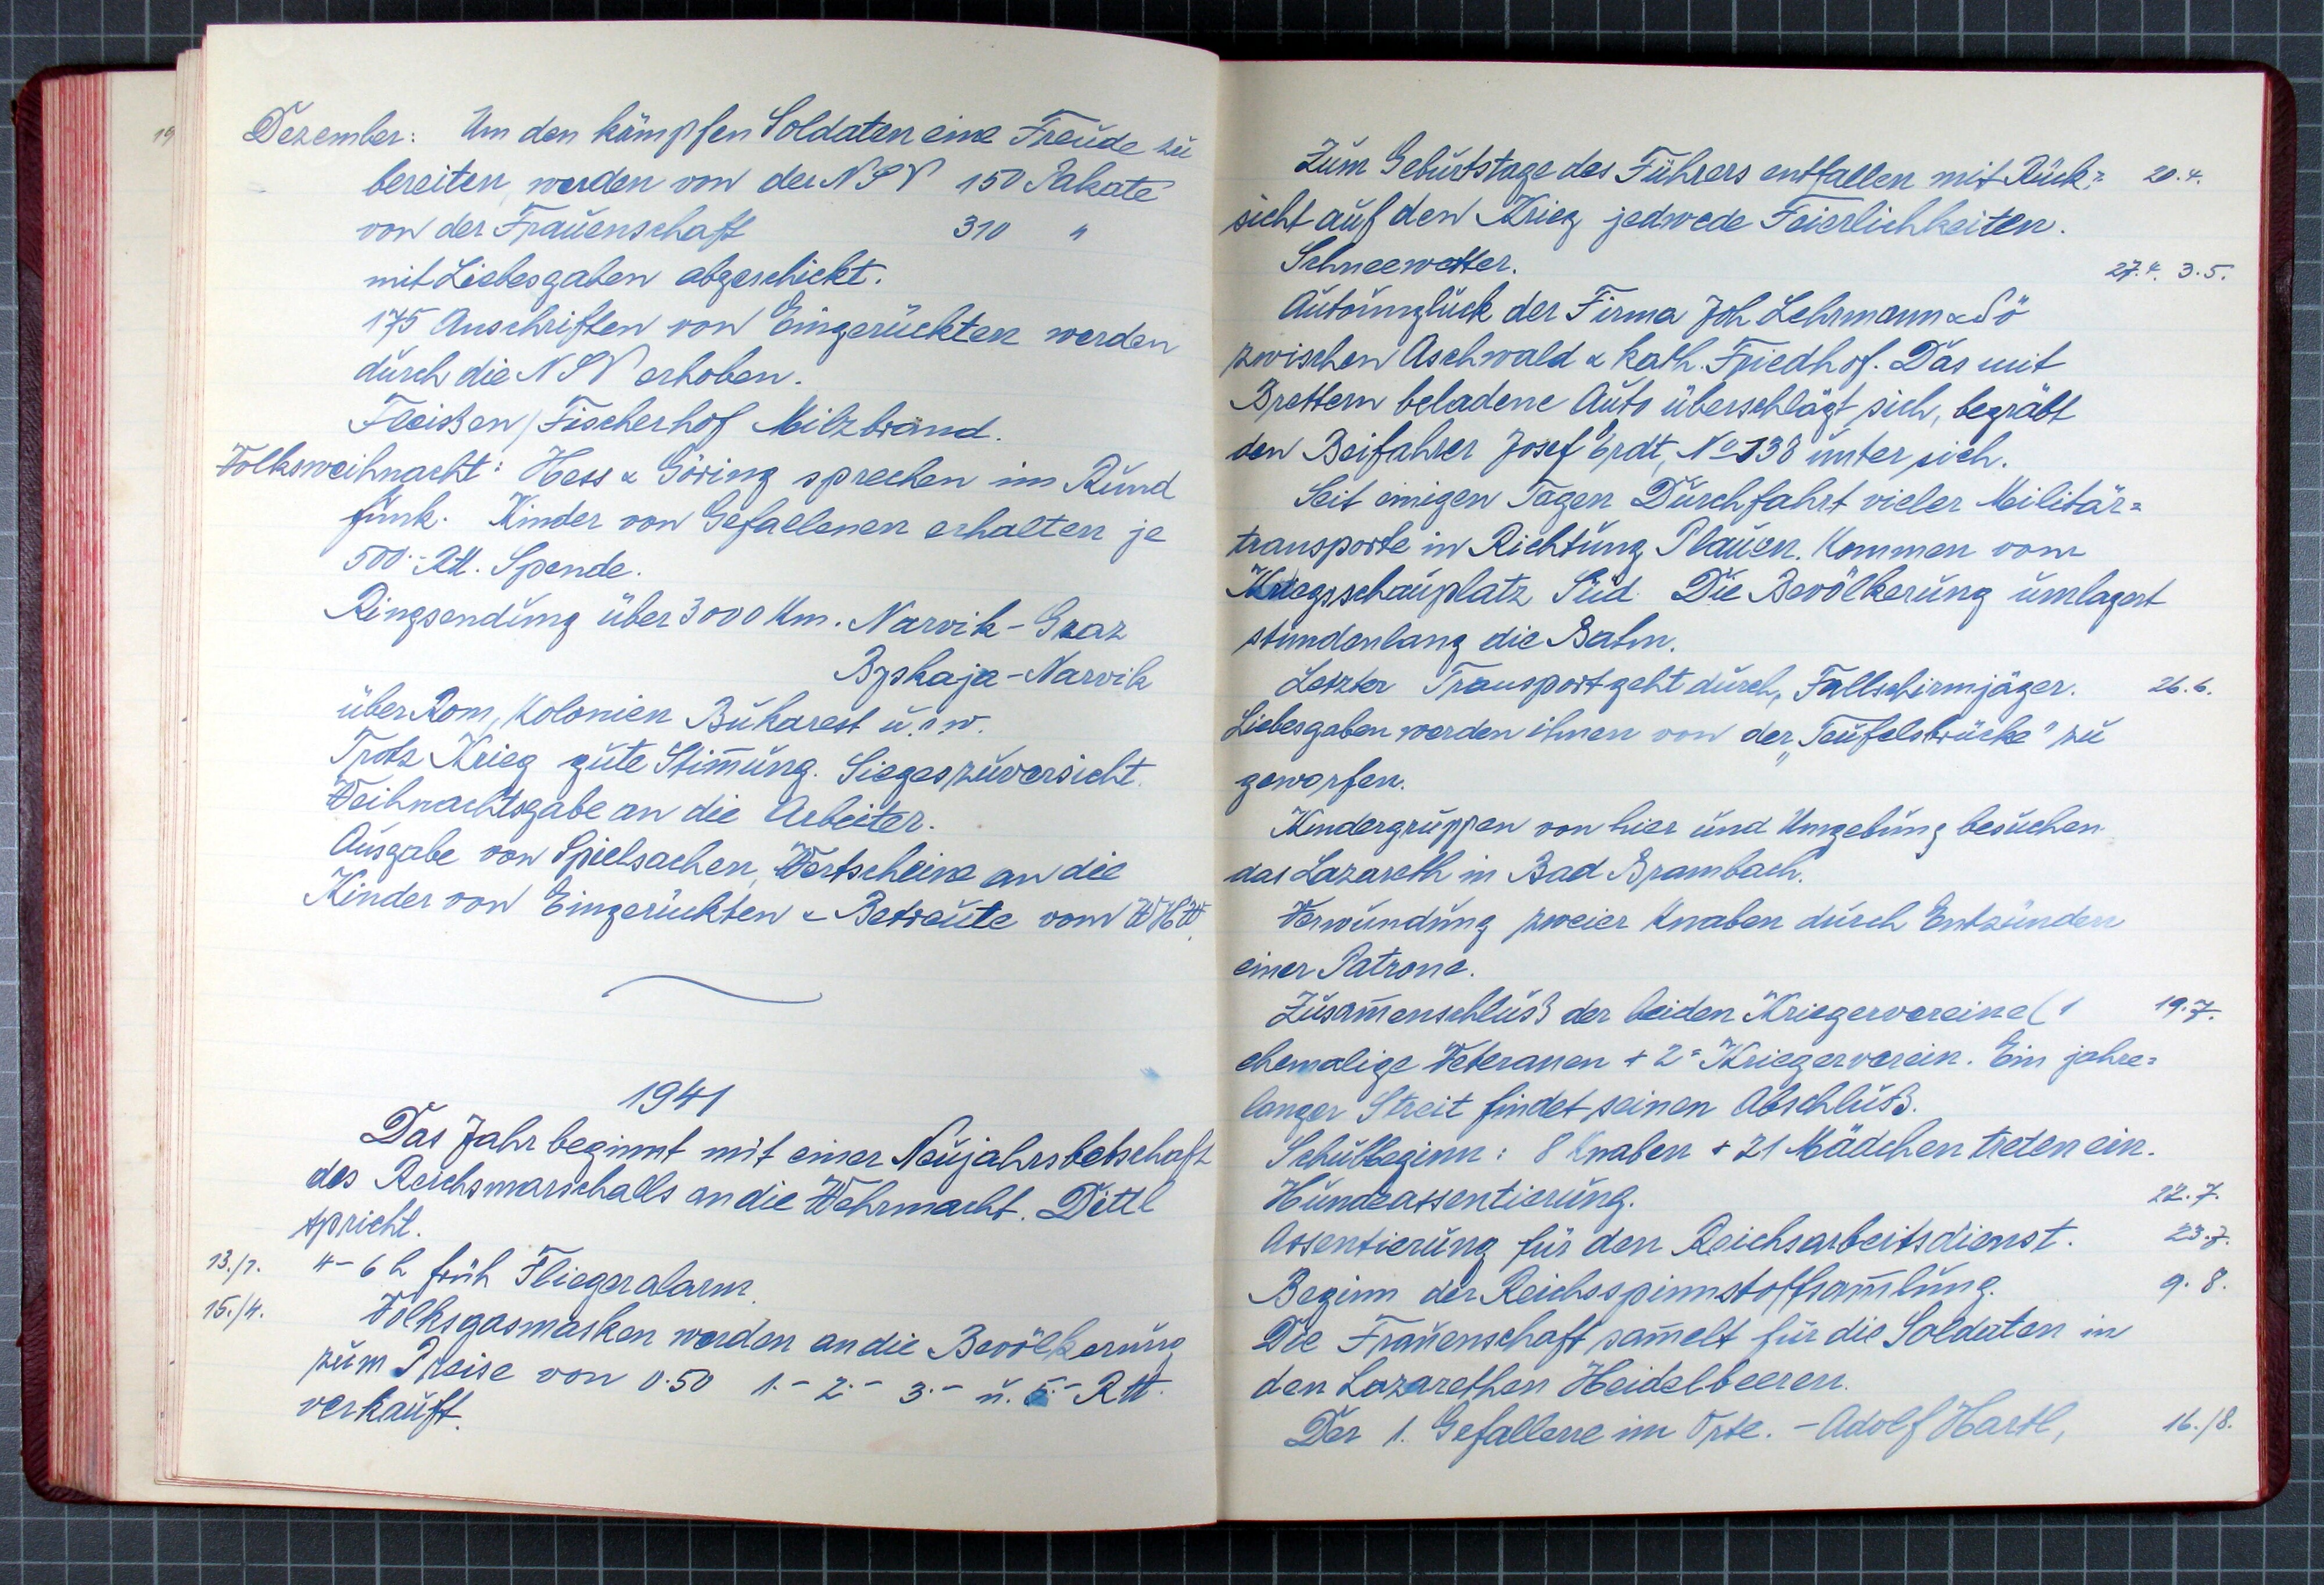 19
Dezember: Um den kämpfen Soldaten eine Freude zu
bereiten, werden von der NSV 150 Pakate
von der Frauenschaft 310 "
mit Liebesgaben abgeschickt.
175 Anschriften von Eingerückten werden
durch die NSV erhoben.
Fleissen/Fischerhof Milzbrand.
Volksweihnacht: Hess & Göring sprechen im Rund
funk. Kinder von Gefallenen erhalten je
500.- RM. Spende.
Ringsendung über 3000 Km. Narvik - Graz
Byskaja - Narvik
über Rom, Kolonien Bukarest u.s.w.
Trotz Krieg gute Stim̄ung. Siegeszuversicht.
Weihnachtsgabe an die Arbeiter.
Ausgabe von Spielsachen, Wertscheine an die
Kinder von Eingerückten & Betreute vom WHW.
1941
Das Jahr beginnt mit einer Neujahrsbotschaft
des Reichsmarschalls an die Wehrmacht. Dittl
spricht.
13./1. 4-6 h früh Fliegeralarm.
15./4. Volksgasmasken werden an die Bevölkerung
zum Preise von 0.50 1.- 2.- 3.- u. 5.- RM.
verkauft.
Zum Geburtstage des Führers entfallen mit Rück= 20.4.
sicht auf den Krieg jedwede Feierlichkeiten.
Schneewetter. 27.4. 3.5.
Autounglück der Firma Joh Lehrmann & Sö
zwischen Aschwald & kath. Friedhof. Das mit
Brettern beladene Auto überschlägt sich, begräbt
den Beifahrer Josef Erdt, No 138 unter sich.
Seit einigen Tagen Durchfahrt vieler Militär=
transporte in Richtung Plauen. Kommen vom
Kriegsschauplatz Süd. Die Bevölkerung umlagert
stundenlang die Bahn.
Letzter Transport geht durch, Fallschirmjäger. 26.6.
Liebesgaben werden ihnen von der „Teufelsbrücke" zu
geworfen.
Kindergruppen von hier und Umgebung besuchen
das Lazareth in Bad Brambach.
Verwundung zweier Knaben durch Entzünden
einer Patrone.
Zusam̄enschluß der beiden Kriegervereine (1 19.7.
ehemalige Veteranen + 2= Kriegerverein. Ein jahre=
langer Streit findet seinen Abschluß.
Schulbeginn: 8 Knaben + 21 Mädchen treten ein.
Hundeassentierung. 22.7.
Assentierung für den Reichsarbeitsdienst. 23.7.
Beginn der Reichsspinnstoffsam̄lung. 9.8.
Die Frauenschaft sam̄elt für die Soldaten in
den Lazarethen Heidelbeeren.
Der 1. Gefallene im Orte. - Adolf Hartl, 16./8.